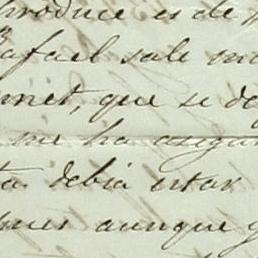 produce es de
Rafael sale
que se
me ha asegu
debia estar
pues aunque